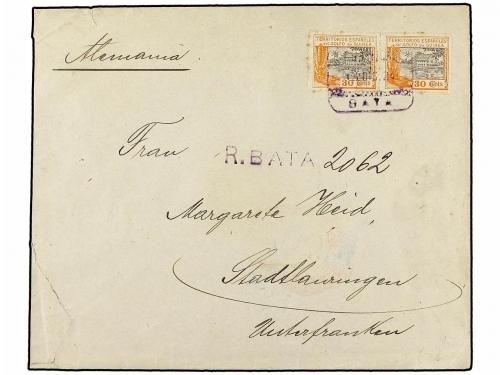 TERRITORIOS ESPAÑOLES
del GOLFO de GUINEA
30 Cts
TERRITORIOS ESPAÑOLES
del GOLFO de GUINEA
30 Cts
BATA
Alemania
Frau R. BATA 2062
Margarete Heid,
Stadtlauringen
Unterfranken